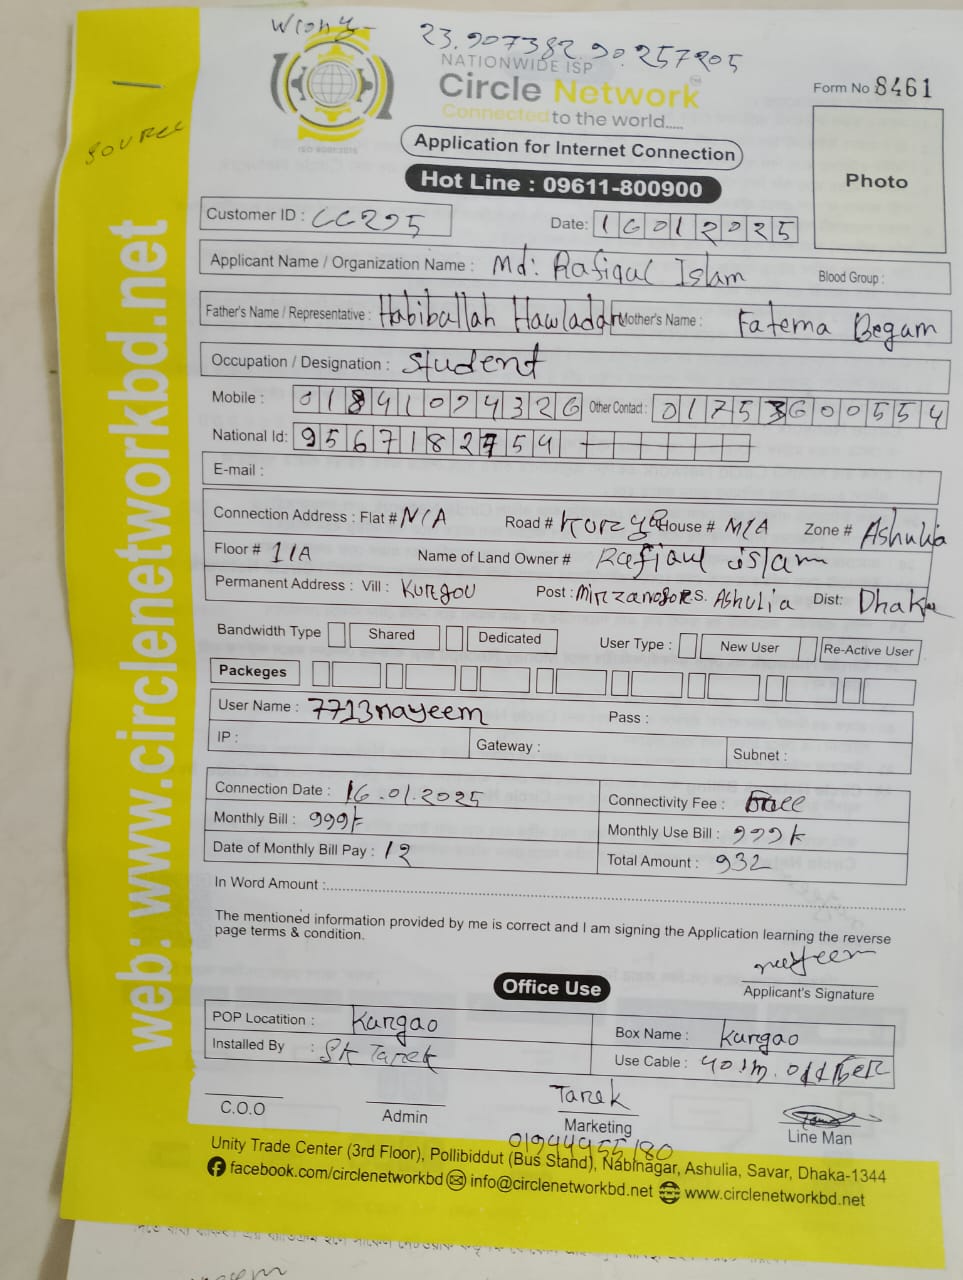 Wrong
23.907382.90.257205
NATIONWIDE ISP
Circle Network
Connected to the world.....
ISO 9001:2015
Form No 8461
Application for Internet Connection
Hot Line : 09611-800900
Photo
source
web: www.circlenetworkbd.net
Customer ID : CC295
Date: 16012025
Applicant Name / Organization Name : Md: Rafiqul Islam Blood Group :
Father's Name / Representative : Habiballah Hawladar Mother's Name : Fatema Begam
Occupation / Designation : Student
Mobile : 01841094326 Other Contact : 01753600554
National Id: 9567182754
E-mail :
Connection Address : Flat # N/A Road # House # N/A Zone # Ashulia
Floor # 1/A Name of Land Owner # Rafiqul islam
Permanent Address : Vill : Kurgou Post : P.S. Ashulia Dist: Dhaka
Bandwidth Type Shared Dedicated User Type : New User Re-Active User
Packeges
User Name : 7713nayeem Pass :
IP : Gateway : Subnet :
Connection Date : 16.01.2025 Connectivity Fee : Free
Monthly Bill : 999k Monthly Use Bill : 999k
Date of Monthly Bill Pay : 12 Total Amount : 932
In Word Amount :
The mentioned information provided by me is correct and I am signing the Application learning the reverse
page terms & condition.
nayeem
Applicant's Signature
Office Use
POP Locatition : Kurgao Box Name : Kurgao
Installed By : SK Tarek Use Cable :
Tarek
C.O.O Admin Marketing Line Man
01944955180
Unity Trade Center (3rd Floor), Pollibiddut (Bus Stand), Nabinagar, Ashulia, Savar, Dhaka-1344
facebook.com/circlenetworkbd info@circlenetworkbd.net www.circlenetworkbd.net